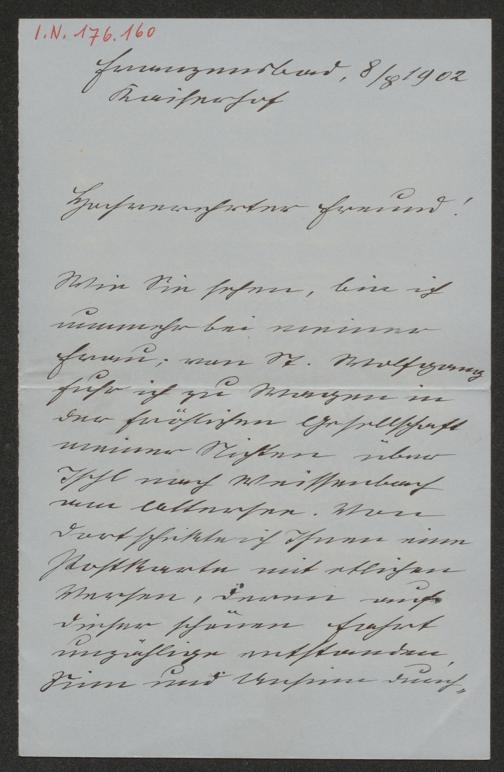 I.N. 176.160
Franzensbad, 8/8 1902
Kaiserhof
Hochverehrter Freund!
Wie Sie sehen, bin ich
nunmehr bei meiner
Frau; von St. Wolfgang
fuhr ich zu Wagen in
der fröhlichen Gesellschaft
meiner Nichten über
Ischl nach Weissenbach
am Attersee. Von
dort schickte ich Ihnen eine
Postkarte mit etlichen
Versen, deren auf
dieser schönen Fahrt
unzählige entstanden,
Sinn und Unsinn durch-